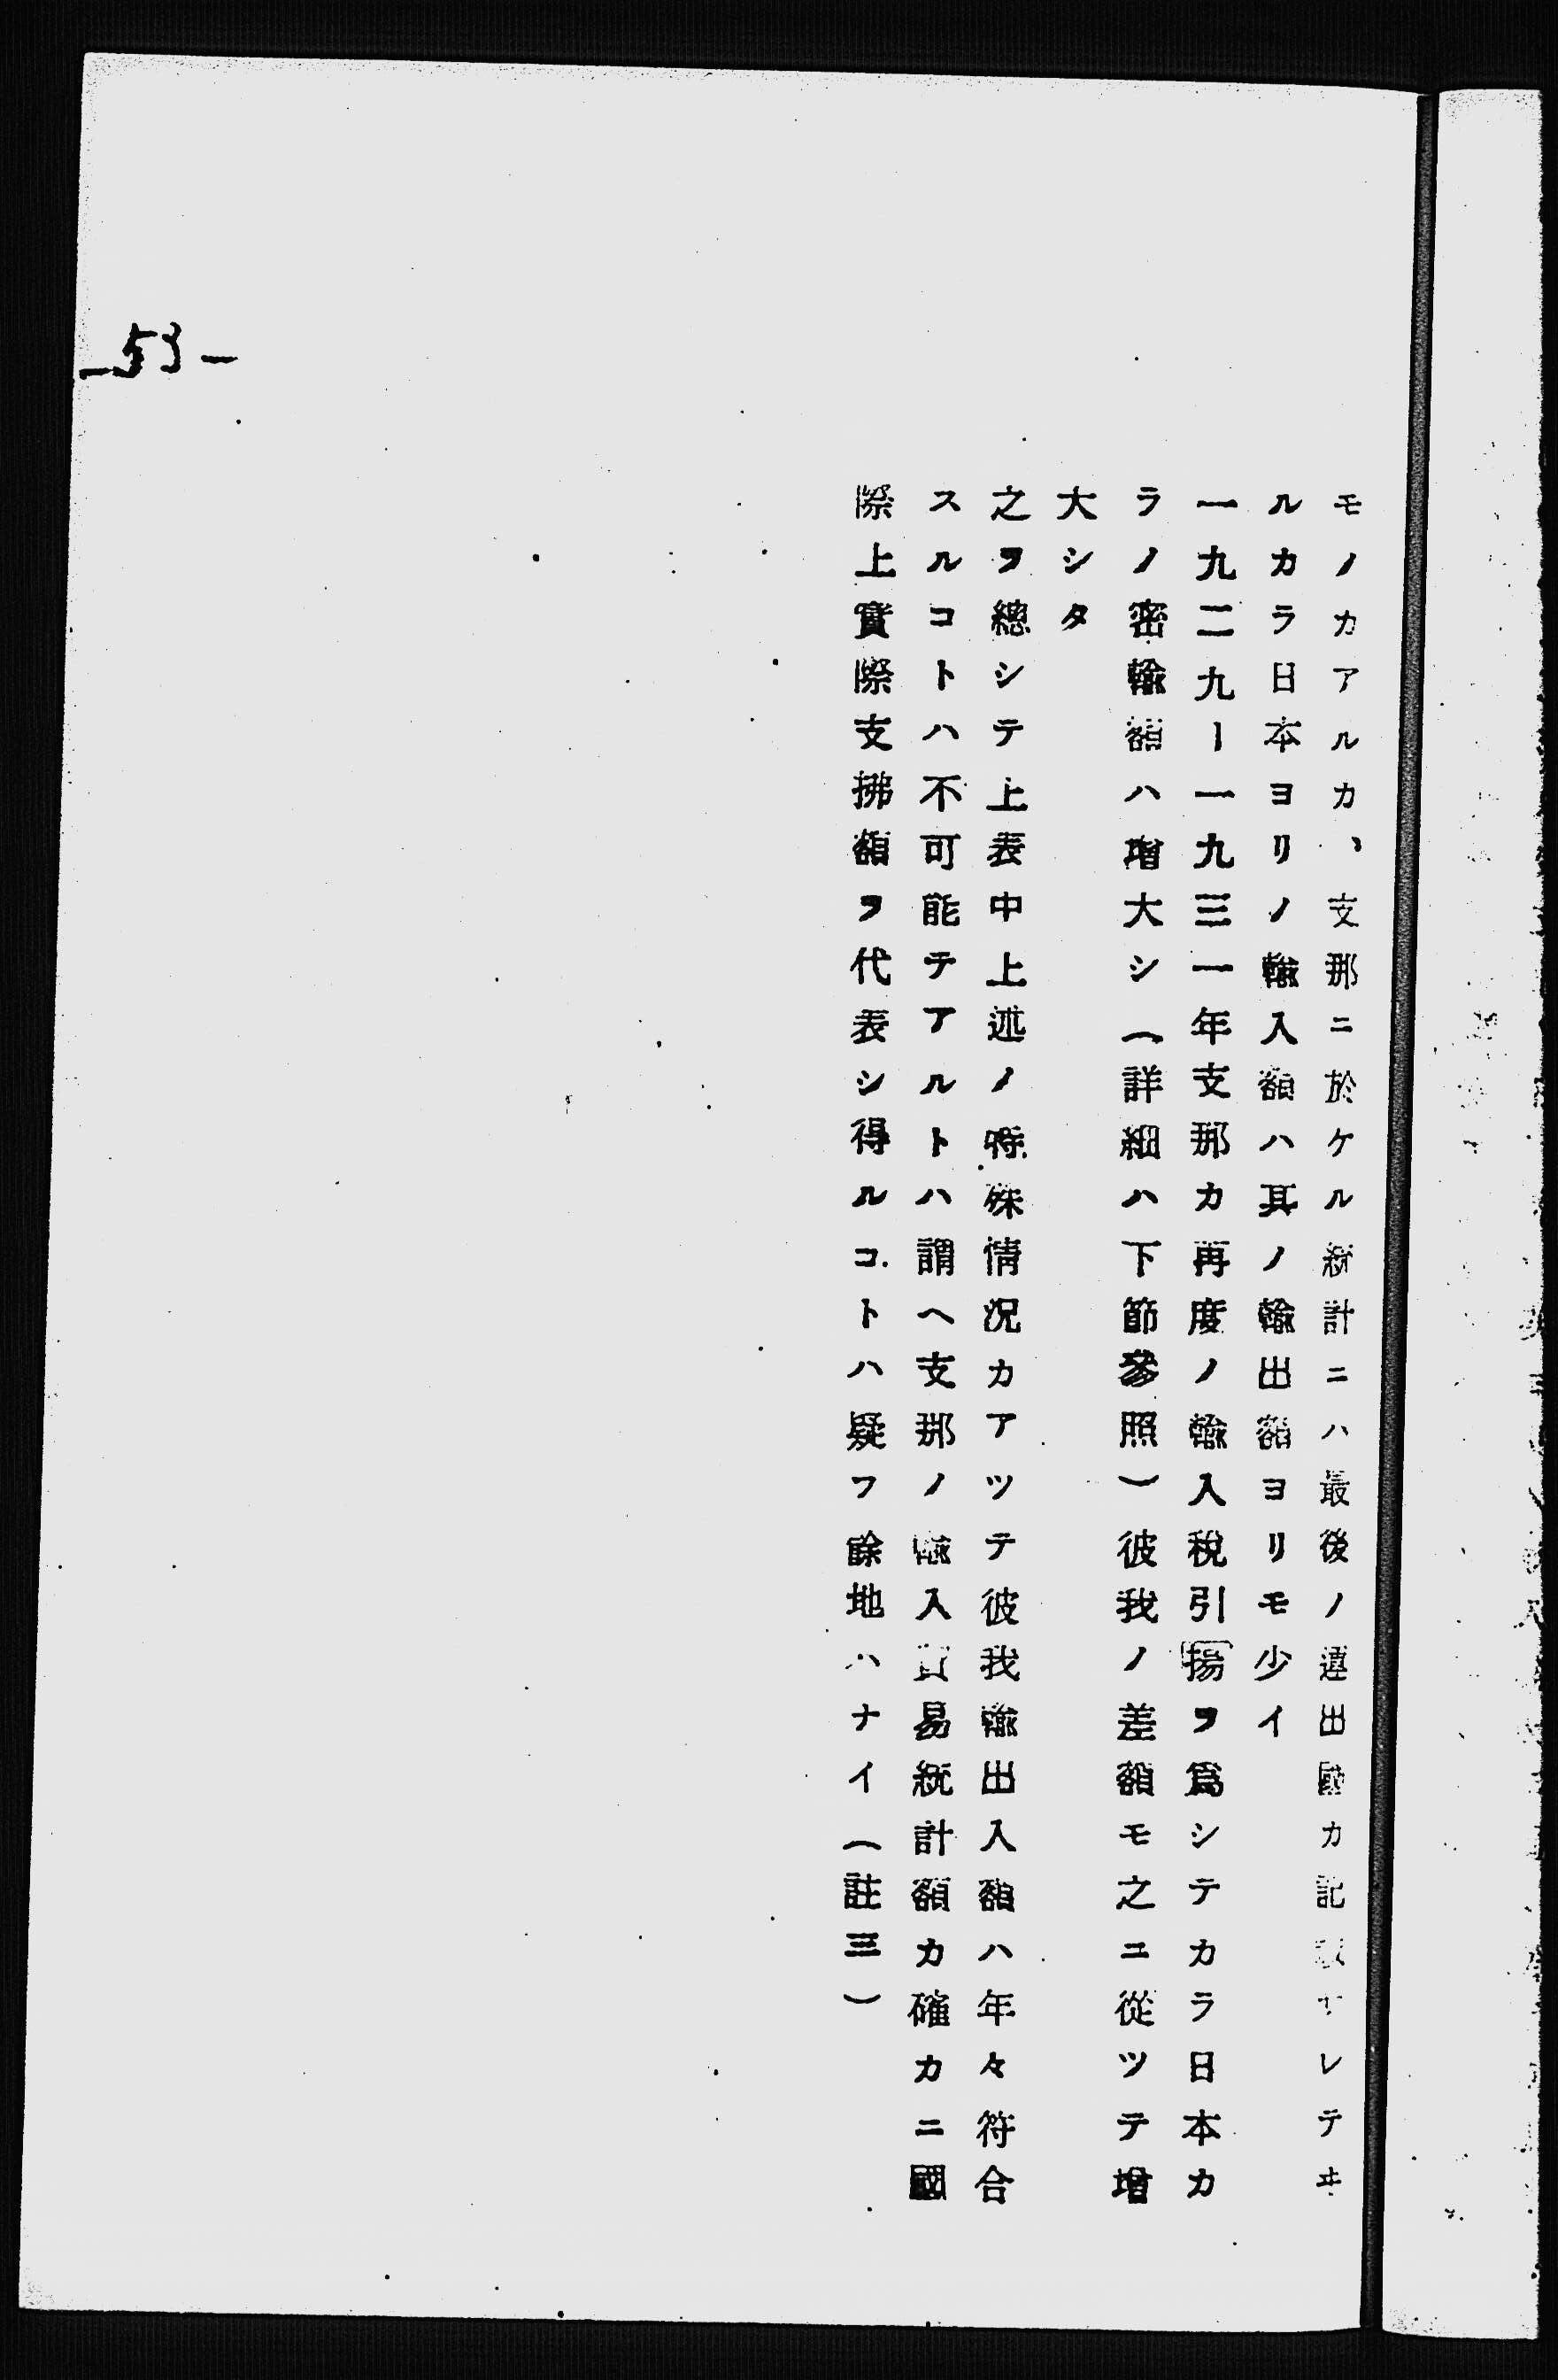 モノカアルカ、支那ニ於ケル統計ニハ最後ノ運出國カ記載サレテヰ
ルカラ日本ヨリノ輸入額ハ其ノ輸出額ヨリモ少イ
一九二九ー一九三一年支那カ再度ノ輸入稅引揚ヲ爲シテカラ日本カ
ラノ密輸額ハ增大シ（詳細ハ下節參照）彼我ノ差額モ之ニ從ツテ增
大シタ
之ヲ總シテ上表中上述ノ特殊情況カアツテ彼我輸出入額ハ年々符合
スルコトハ不可能テアルトハ謂ヘ支那ノ輸入貿易統計額カ確カニ國
際上實際支拂額ヲ代表シ得ルコトハ疑フ餘地ハナイ（註三）
-53-